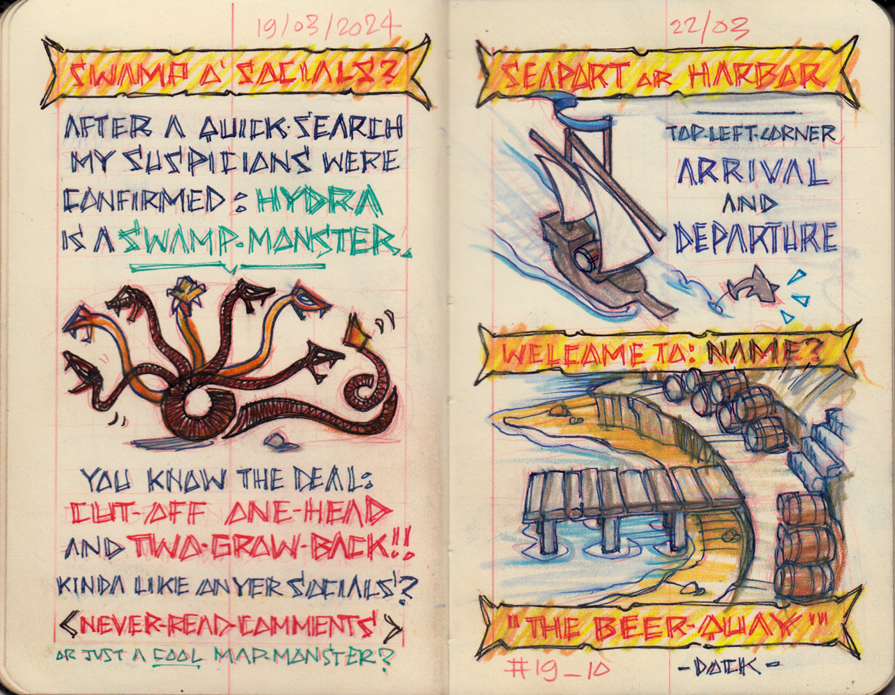 19/03/2024
SWAMP O' SOCIALS?
AFTER A QUICK-SEARCH
MY SUSPICIONS WERE
CONFIRMED: HYDRA
IS A SWAMP-MONSTER.
YOU KNOW THE DEAL:
CUT-OFF ONE-HEAD
AND TWO-GROW-BACK!!
KINDA LIKE ON YER SOCIALS'?
<NEVER-READ-COMMENTS>
OR JUST A COOL MAP-MONSTER?
22/03
SEAPORT OR HARBOR
TOP-LEFT-CORNER
ARRIVAL
AND
DEPARTURE
WELCOME TO: NAME?
"THE BEER-QUAY"
#19_10
-DOCK-